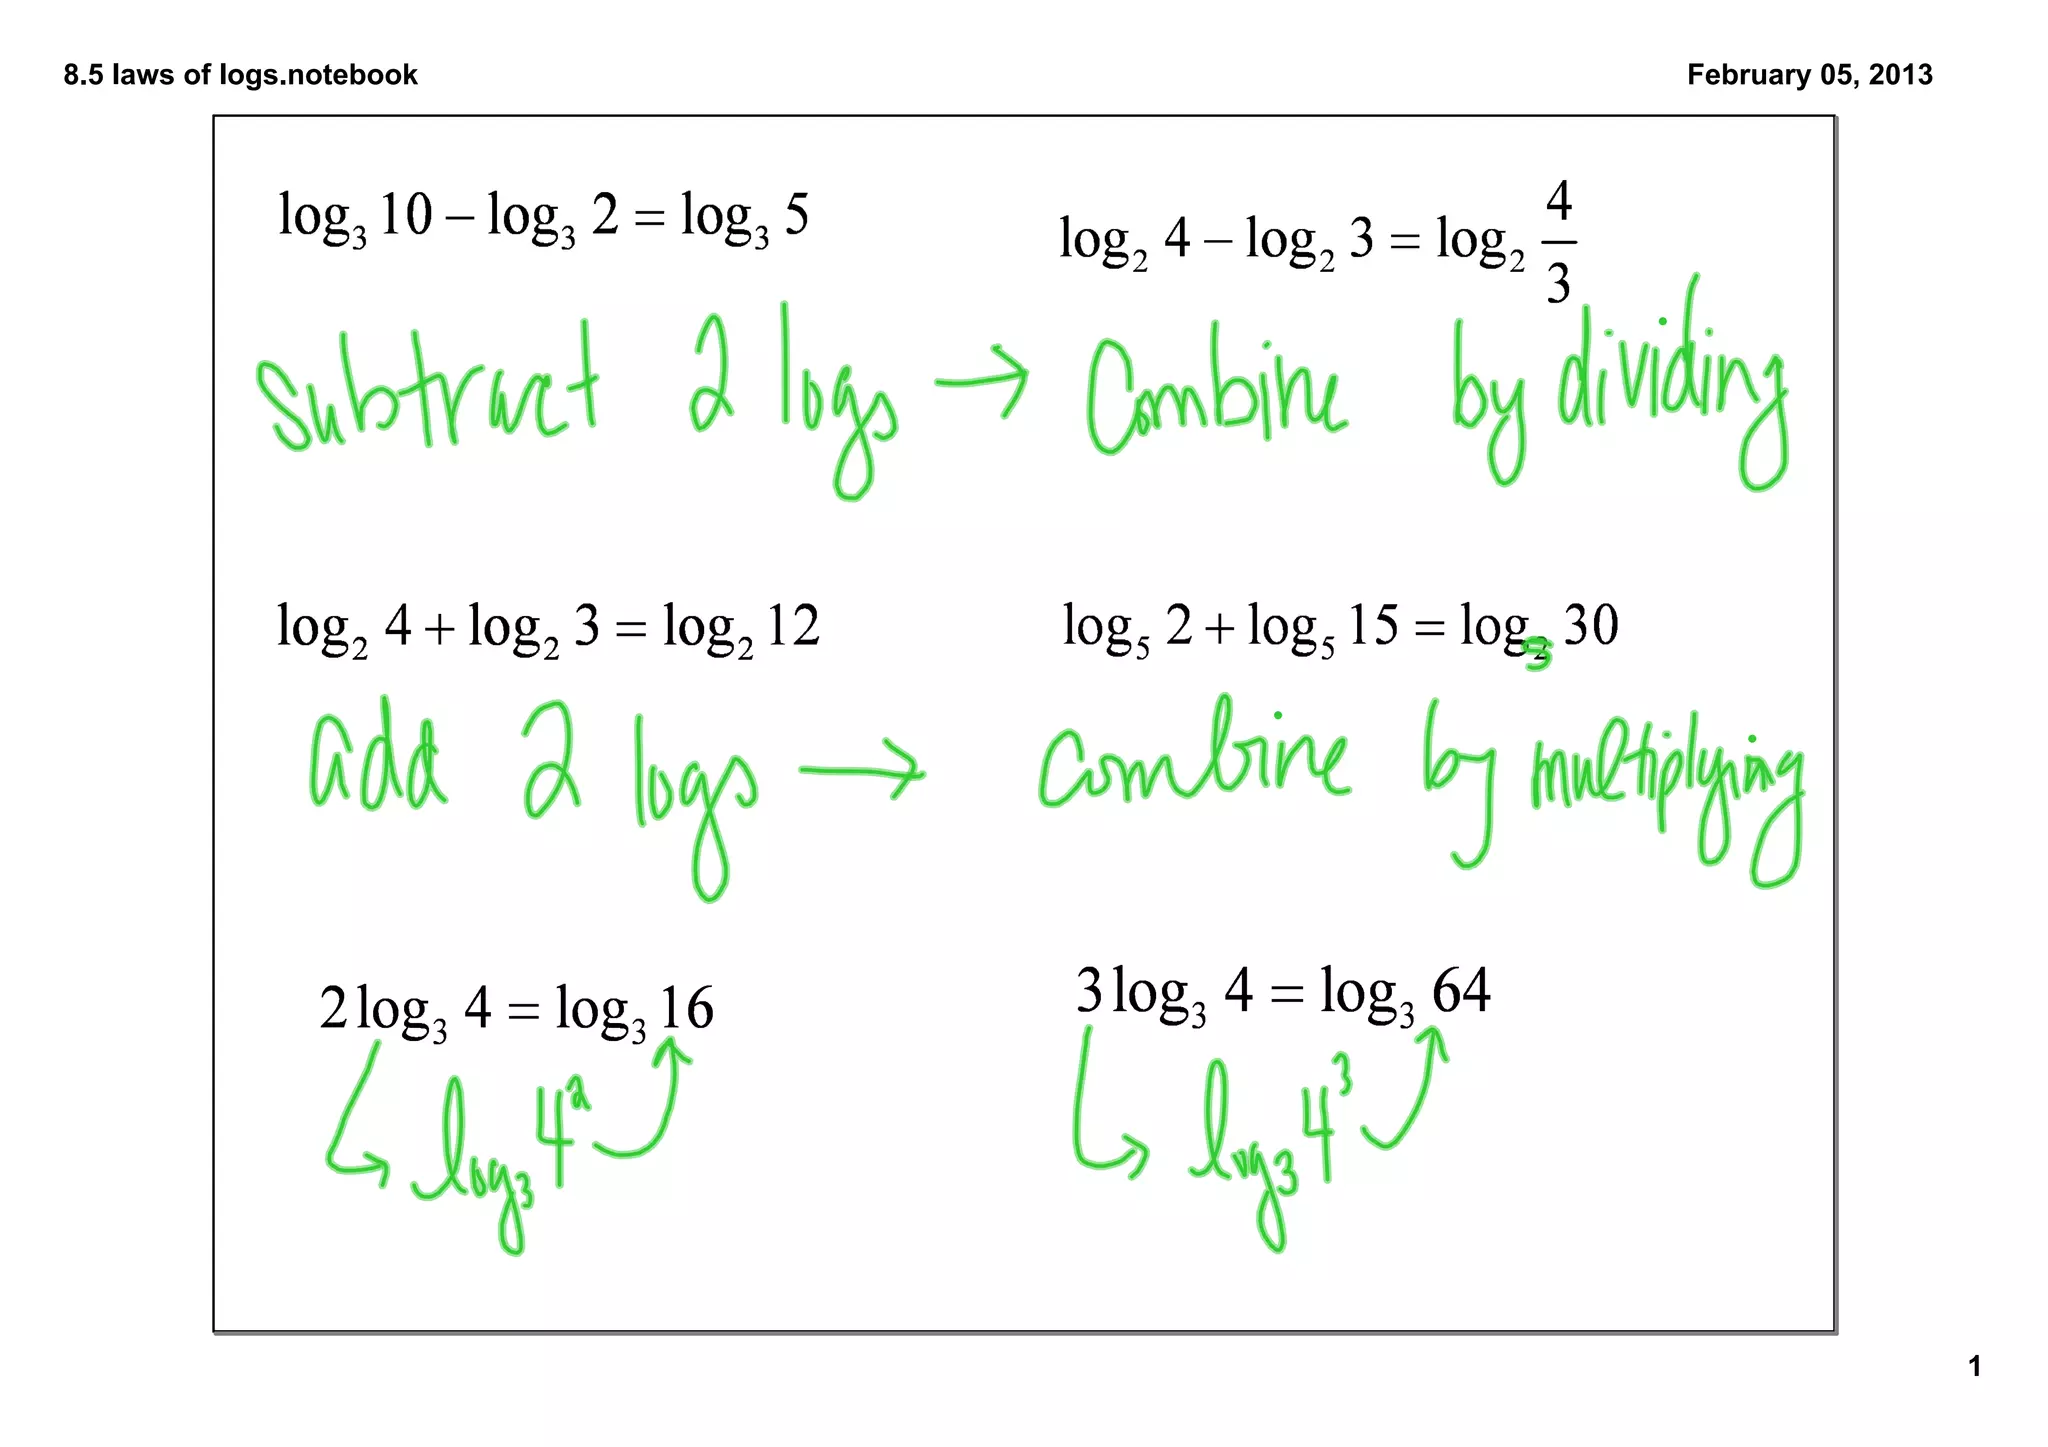 8.5 laws of logs.notebook February 05, 2013
log₃ 10 − log₃ 2 = log₃ 5
log₂ 4 − log₂ 3 = log₂ 4/3
Subtract 2 logs → Combine by dividing
log₂ 4 + log₂ 3 = log₂ 12
log₅ 2 + log₅ 15 = log₅ 30
add 2 logs → combine by multiplying
2 log₃ 4 = log₃ 16
3 log₃ 4 = log₃ 64
log₃ 4²
log₃ 4³
1